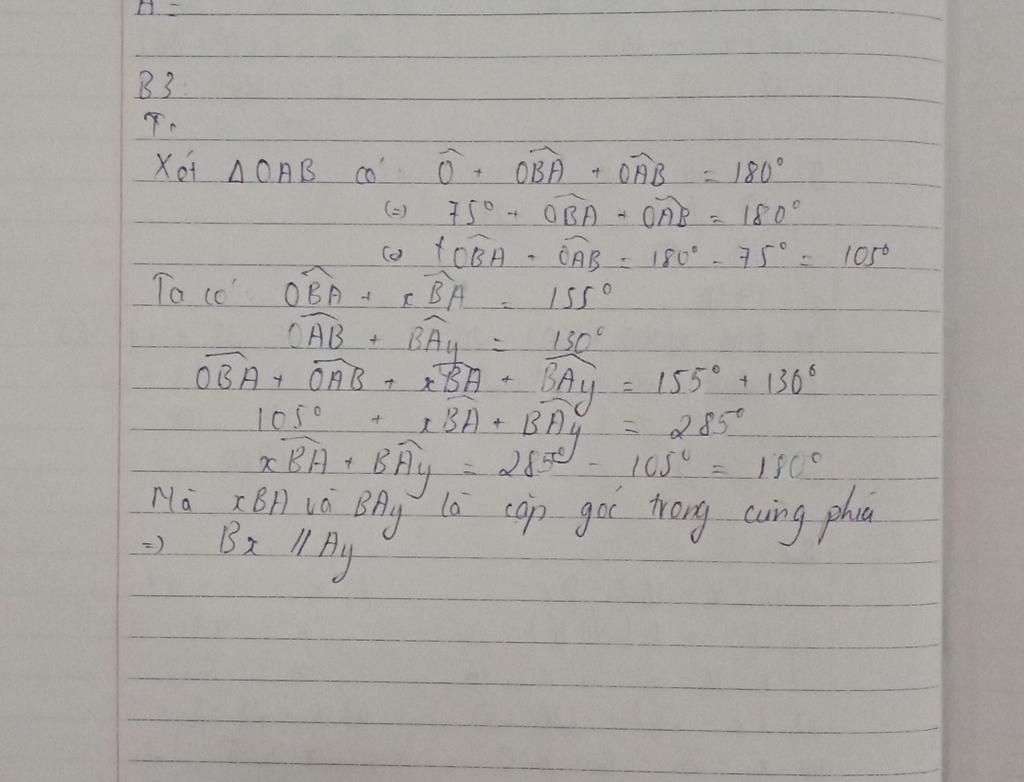 A =
B3:
T.
Xét ΔOAB có: Ô + OBA + OAB = 180°
(=) 75° + OBA + OAB = 180°
(=) OBA + OAB = 180° - 75° = 105°
Ta có: OBA + xBA = 155°
OAB + BAy = 130°
OBA + OAB + xBA + BAy = 155° + 130°
105° + xBA + BAy = 285°
xBA + BAy = 285° - 105° = 180°
Mà xBA và BAy là cặp góc trong cùng phía
=) Bx // Ay